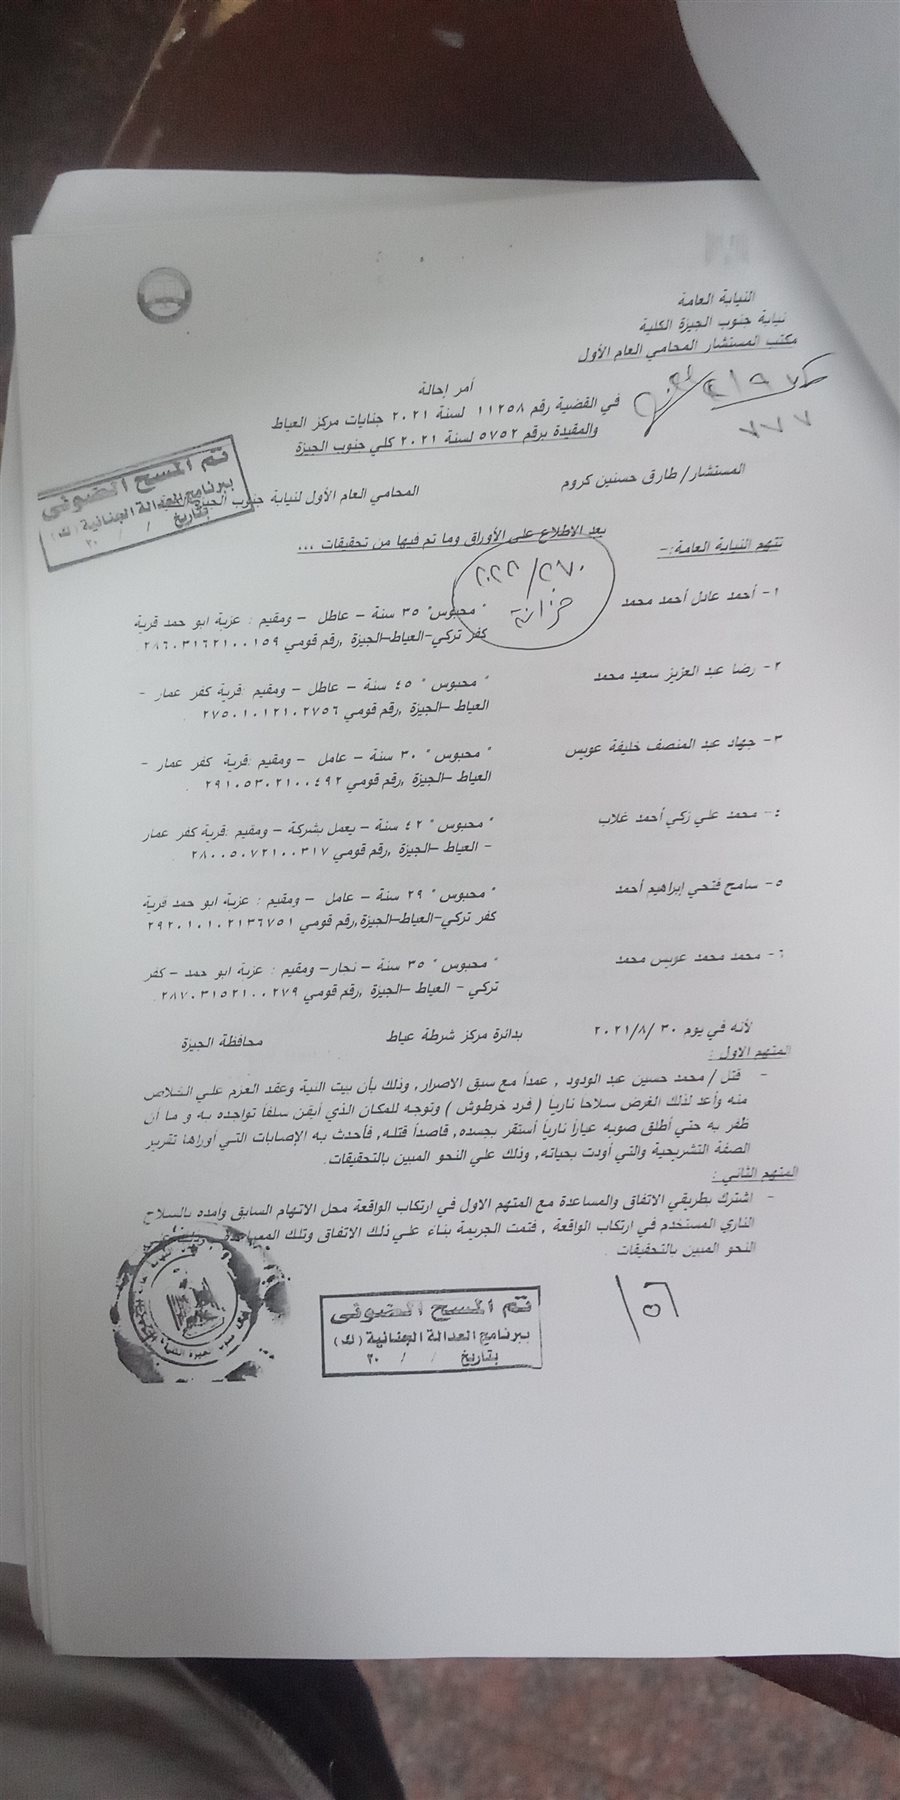 النيابة العامة
نيابة جنوب الجيزة الكلية
مكتب المستشار المحامي العام الأول
أمر إحالة
في القضية رقم ١١٢٥٨ لسنة ٢٠٢١ جنايات مركز العياط
والمقيدة برقم ٥٧٥٢ لسنة ٢٠٢١ كلي جنوب الجيزة
٧٧٧
تم المسح الضوئى
ببرنامج العدالة الجنائية (ك)
بتاريخ / / ٢٠
المستشار/ طارق حسنين كروم المحامي العام الأول لنيابة جنوب الجيزة
بعد الاطلاع على الأوراق وما تم فيها من تحقيقات ...
تتهم النيابة العامة:-
٢٨٠/٢٠٢٢
خزانة
١- أحمد عادل أحمد محمد " محبوس" ٣٥ سنة – عاطل – ومقيم : عزبة ابو حمد قرية
كفر تركي-العياط-الجيزة ,رقم قومي ٢٨٦٠٣١٦٢١٠٠١٥٩
٢- رضا عبد العزيز سعيد محمد " محبوس " ٤٥ سنة – عاطل – ومقيم :قرية كفر عمار -
العياط –الجيزة ,رقم قومي ٢٧٥٠١٠١٢١٠٢٧٥٦ .
٣- جهاد عبد المنصف خليفة عويس " محبوس " ٣٠ سنة – عامل – ومقيم :قرية كفر عمار -
العياط –الجيزة ,رقم قومي ٢٩١٠٥٣٠٢١٠٠٤٩٢ .
٤- محمد علي زكي أحمد غلاب " محبوس " ٤٢ سنة – يعمل بشركة – ومقيم :قرية كفر عمار
- العياط –الجيزة ,رقم قومي ٢٨٠٠٥٠٧٢١٠٠٣١٧ .
٥- سامح فتحي إبراهيم أحمد " محبوس " ٢٩ سنة – عامل – ومقيم : عزبة ابو حمد قرية
كفر تركي-العياط-الجيزة,رقم قومي ٢٩٢٠١٠١٠٢١٣٦٧٥١
٦- محمد محمد عويس محمد " محبوس " ٣٥ سنة – نجار- ومقيم : عزبة ابو حمد – كفر
تركي - العياط –الجيزة ,رقم قومي ٢٨٧٠٣١٥٢١٠٠٢٧٩ .
لأنه في يوم ٣٠ /٢٠٢١/٨ بدائرة مركز شرطة عياط محافظة الجيزة
المتهم الاول :
- قتل / محمد حسين عبد الودود , عمداً مع سبق الاصرار, وذلك بأن بيت النية وعقد العزم علي الخلاص
منه وأعد لذلك الغرض سلاحا نارياً ( فرد خرطوش ) وتوجه للمكان الذي أيقن سلفاً تواجده به و ما أن
ظفر به حتي أطلق صوبه عياراً نارياً أستقر بجسده, قاصداً قتله, فأحدث به الإصابات التي أوراها تقرير
الصفة التشريحية والتي أودت بحياته, وذلك علي النحو المبين بالتحقيقات.
المتهم الثاني :
- اشترك بطريقي الاتفاق والمساعدة مع المتهم الاول في ارتكاب الواقعة محل الاتهام السابق وأمده بالسلاح
الناري المستخدم في ارتكاب الواقعة , فتمت الجريمة بناء علي ذلك الاتفاق وتلك المساعدة
النحو المبين بالتحقيقات .
تم المسح الضوئى
ببرنامج العدالة الجنائية (ك)
بتاريخ / / ٢٠